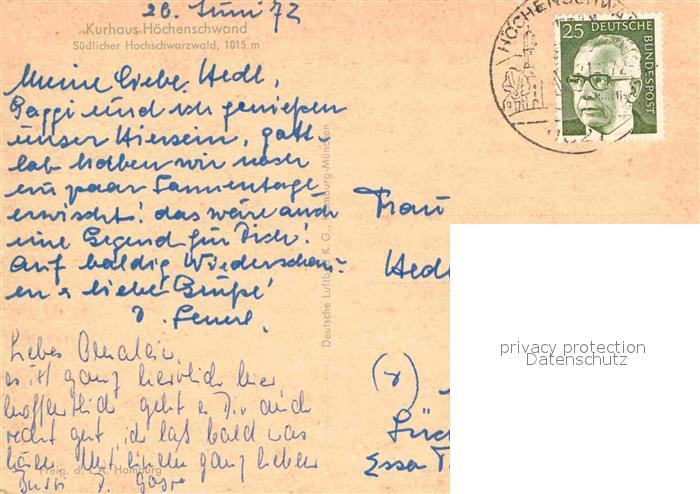 26. Juni 72
Kurhaus Höchenschwand
Südlicher Hochschwarzwald, 1015 m
Meine liebe Hedl,
Gaggi und ich genießen
unser Hiersein, gott-
lob haben wir noch
ein paar Sonnentage
erwischt! das wäre auch
eine Gegend für Dich!
Auf baldig Wiederschau-
en & liebe Grüße!
D.
Liebes
es ist ganz herrlich hier
hoffentlich geht es Dir auch
recht gut, ich laß bald was
hören. Mit lieben ganz lieben
Bussi D.
Freig. d. L.A. Hamburg
Deutsche Luftbild K. G., Hamburg-München
HÖCHENSCHWA
25 DEUTSCHE
BUNDESPOST
Frau
Hedl
privacy protection
Datenschutz